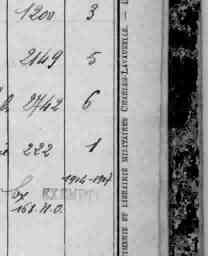 1200 3
2149 5
2742 6
222 1
1916-1917
168. N.O.
IMERIE ET LIBRAIRIE MILITAIRES CHARLES-LAVAUZELLE. —